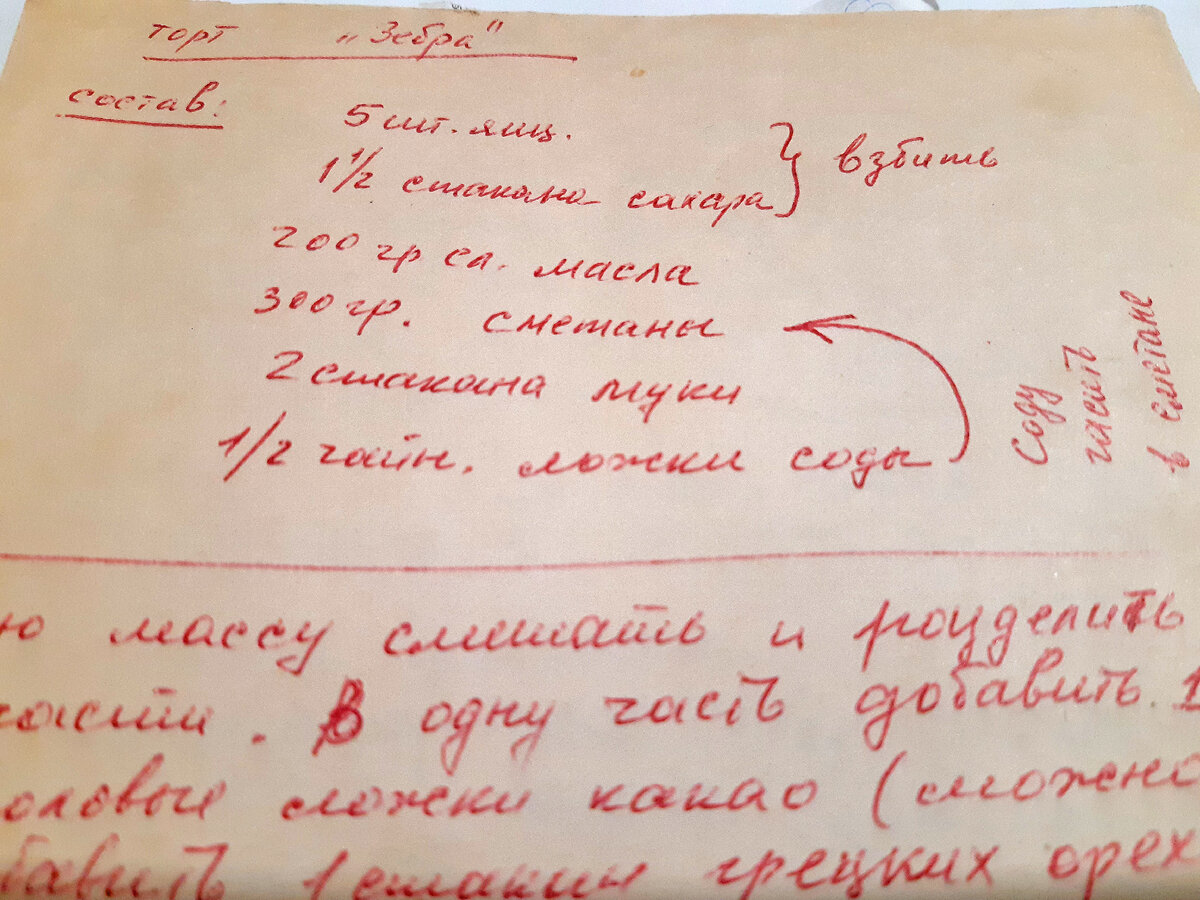 торт "Зебра"
состав:
5 шт. яиц.
1 1/2 стакана сахара } взбить
200 гр сл. масла
300 гр. сметаны
2 стакана муки
1/2 чайн. ложки соды
Соду
гасить
в сметане
ю массу смешать и разделить
части. В одну часть добавить 1
оловые ложки какао (можно
бавить 1 стакан грецких орех